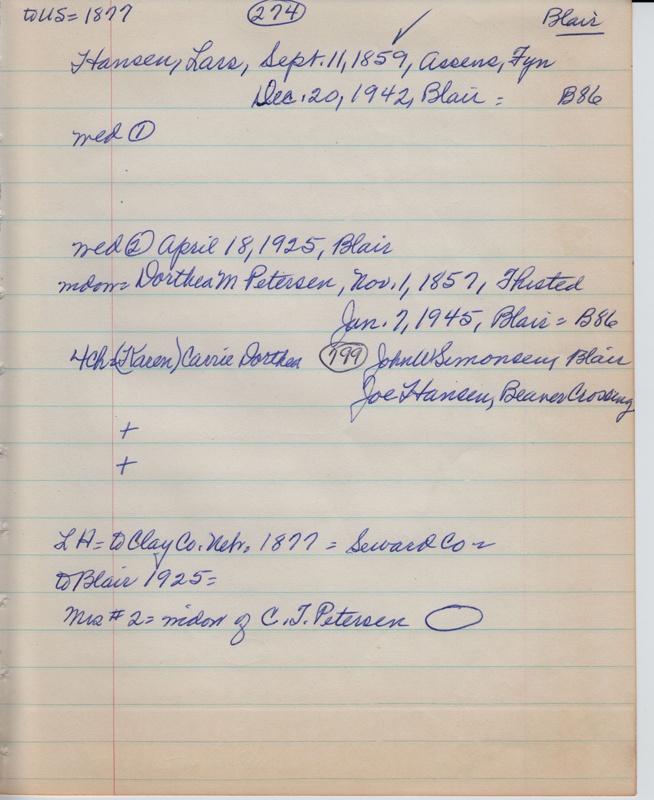 to US = 1877 274 Blair
Hansen, Lars, Sept. 11, 1859, Assens, Fyn
Dec. 20, 1942, Blair = B86
wed ①
wed ② April 18, 1925, Blair
widow = Dorthea M Petersen, Nov. 1, 1857, Thisted
Jan. 7, 1945, Blair = B86
4ch = (Karen) Carrie Dorthea 799 John W Simonsen, Blair
Joe Hansen, Beaver Crossing
+
+
L H = to Clay Co. Nebr. 1877 = Seward Co =
to Blair 1925 =
Mrs # 2 = widow of C. T. Petersen